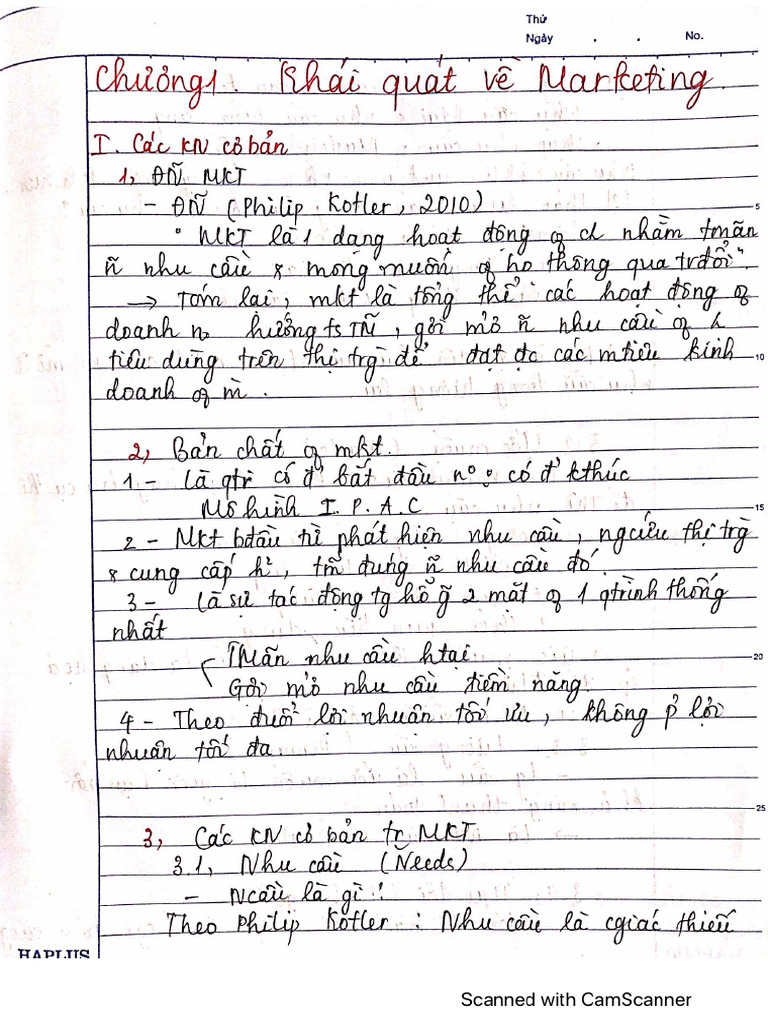 Thứ
Ngày . . No.
Chương1. Khái quát về Marketing
I. Các KN cơ bản
1, ĐN MKT
- ĐN (Philip Kotler, 2010)
5
" MKT là 1 dạng hoạt động of nhằm tmãn
ñ nhu cầu & mong muốn of họ thông qua trđổi".
→ Tóm lại, mkt là tổng thể các hoạt động of
doanh no hướng ts TM, gợi mở ñ nhu cầu of
tiêu dùng trên thị trg để đạt đc các mtiêu kinh
10
doanh of m.
2, Bản chất of mkt.
1 - Là qtr có đ' bắt đầu no có đ' kthúc
Mô hình I. P. A. C
15
2 - Mkt bđầu từ phát hiện nhu cầu, ngcứu thị trg
& cung cấp h², tm đúng ñ nhu cầu đó.
3 - Là sự tác động tg hỗ g 2 mặt of 1 qtrình thống
nhất
TMãn nhu cầu htại
20
Gợi mở nhu cầu tiềm năng
4 - Theo đuổi lợi nhuận tối ưu, không p lợi
nhuận tối đa.
25
3, Các KN cơ bản tr MKT
3.1, Nhu cầu (Needs)
- Ncầu là gì !
Theo Philip Kotler : Nhu cầu là cgiác thiếu
HAPLUS
Scanned with CamScanner